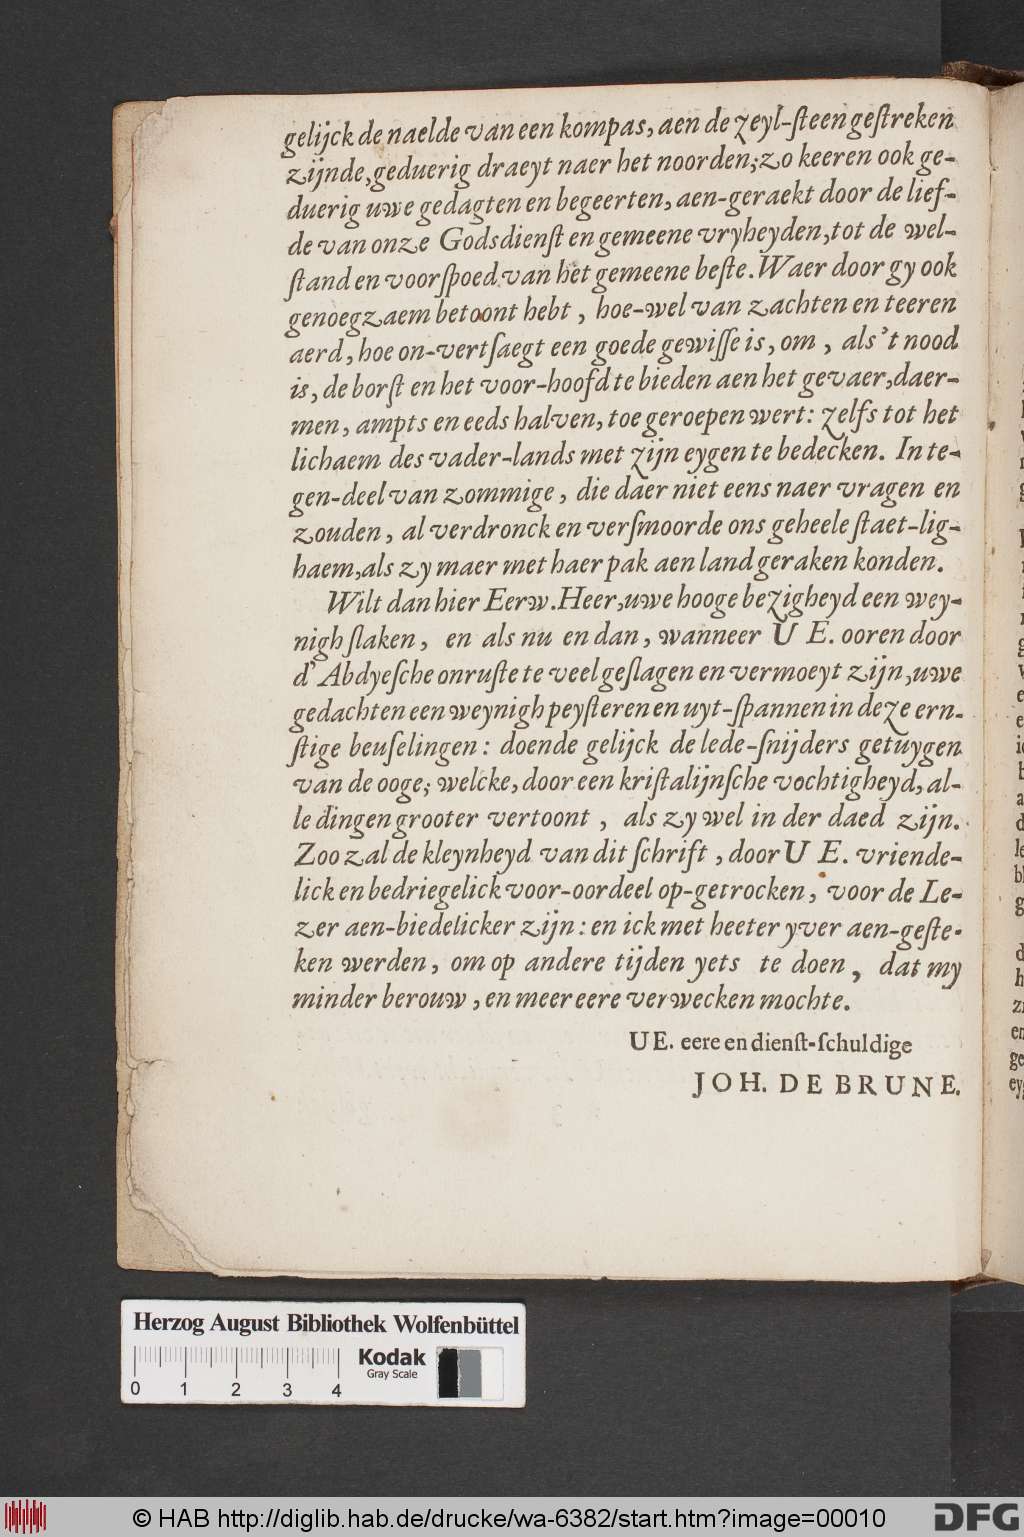 gelijck de naelde van een kompas, aen de zeyl-ſteen geſtreken
zijnde, geduerig draeyt naer het noorden; zo keeren ook ge-
duerig uwe gedagten en begeerten, aen-geraekt door de lief-
de van onze Godsdienſt en gemeene vryheyden, tot de wel-
ſtand en voorſpoed van het gemeene beſte. Waer door gy ook
genoegzaem betoont hebt, hoe-wel van zachten en teeren
aerd, hoe on-vertſaegt een goede gewiſſe is, om, als 't nood
is, de borſt en het voor-hoofd te bieden aen het gevaer, daer-
men, ampts en eeds halven, toe geroepen wert: zelfs tot het
lichaem des vader-lands met zijn eygen te bedecken. In te-
gen-deel van zommige, die daer niet eens naer vragen en
zouden, al verdronck en verſmoorde ons geheele ſtaet-lig-
haem, als zy maer met haer pak aen land geraken konden.
Wilt dan hier Eerw. Heer, uwe hooge bezigheyd een wey-
nigh ſlaken, en als nu en dan, wanneer U E. ooren door
d' Abdyeſche onruſte te veel geſlagen en vermoeyt zijn, uwe
gedachten een weynigh peyſteren en uyt-ſpannen in deze ern-
ſtige beuſelingen: doende gelijck de lede-ſnijders getuygen
van de ooge; welcke, door een kriſtalijnſche vochtigheyd, al-
le dingen grooter vertoont, als zy wel in der daed zijn.
Zoo zal de kleynheyd van dit ſchrift, door U E. vriende-
lick en bedriegelick voor-oordeel op-getrocken, voor de Le-
zer aen-biedelicker zijn: en ick met heeter yver aen-geſte-
ken werden, om op andere tijden yets te doen, dat my
minder berouw, en meer eere verwecken mochte.
UE. eere en dienſt-ſchuldige
JOH. DE BRUNE.
Herzog August Bibliothek Wolfenbüttel
Kodak
Gray Scale
0 1 2 3 4
© HAB http://diglib.hab.de/drucke/wa-6382/start.htm?image=00010
DFG